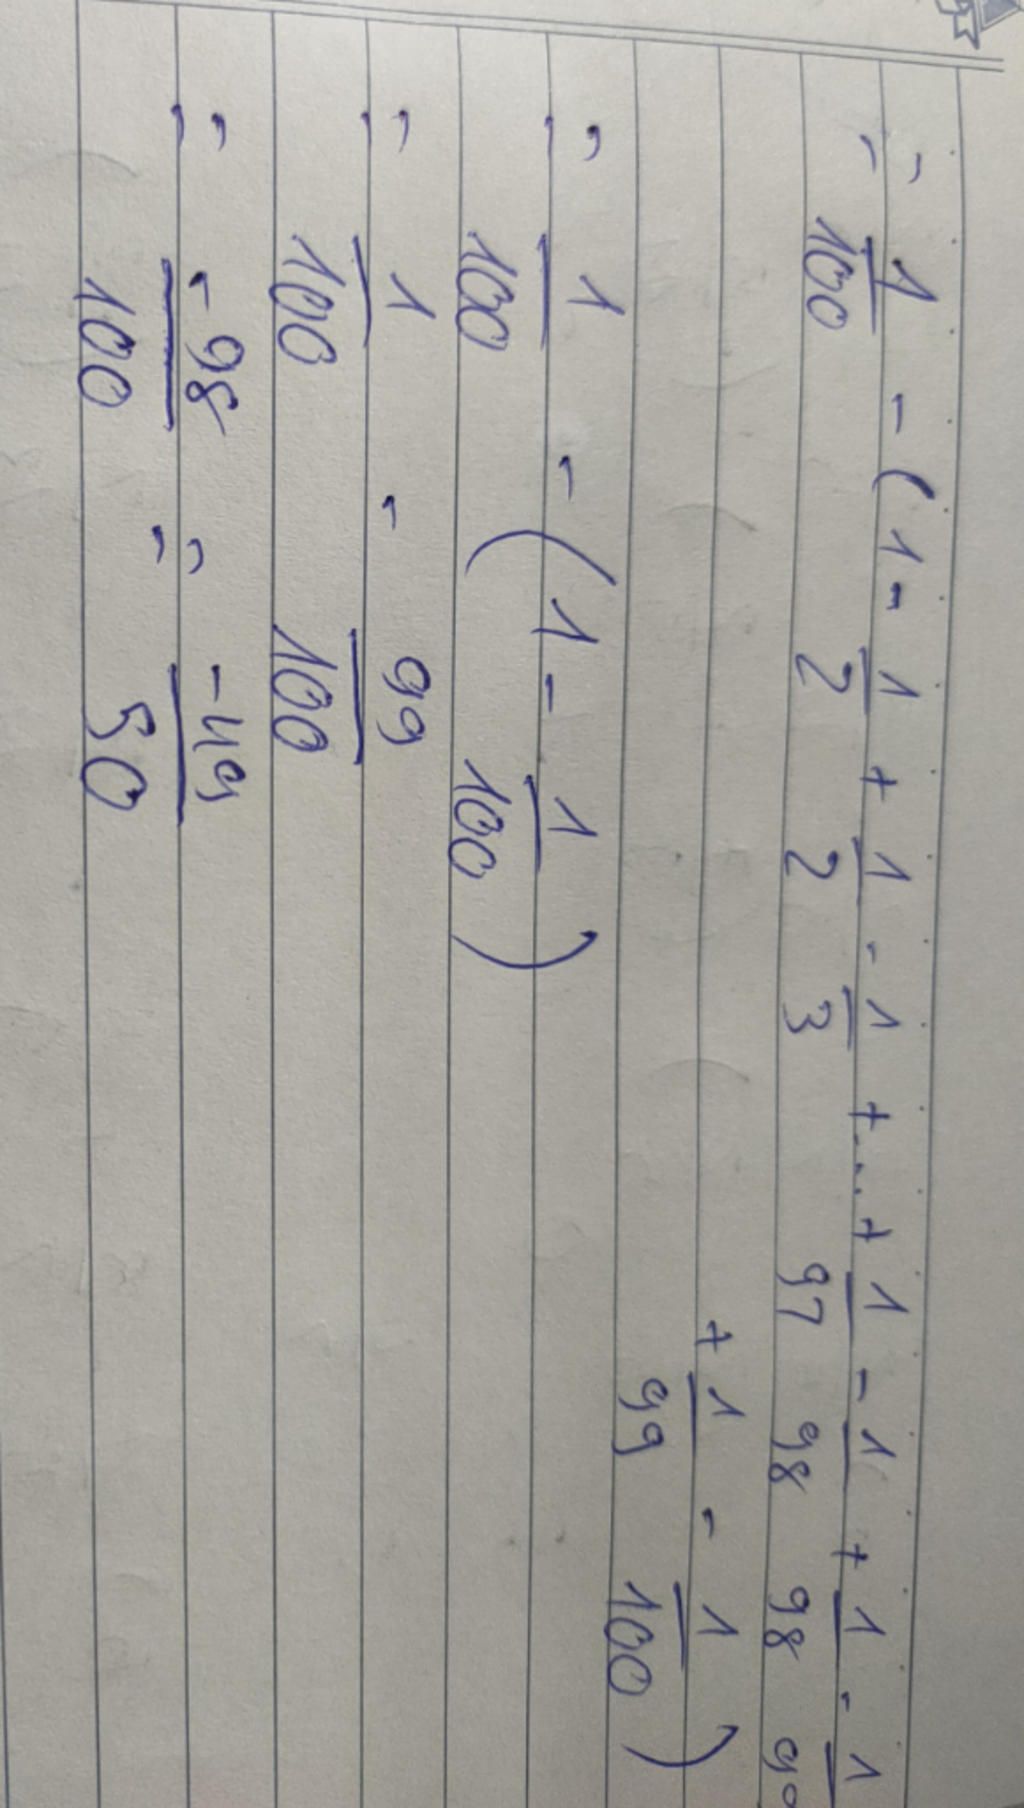 = 1/100 - (1 - 1/2 + 1/2 - 1/3 + ... + 1/97 - 1/98 + 1/98 - 1/99
+ 1/99 - 1/100)
= 1/100 - (1 - 1/100)
= 1/100 - 99/100
= -98/100 = -49/50